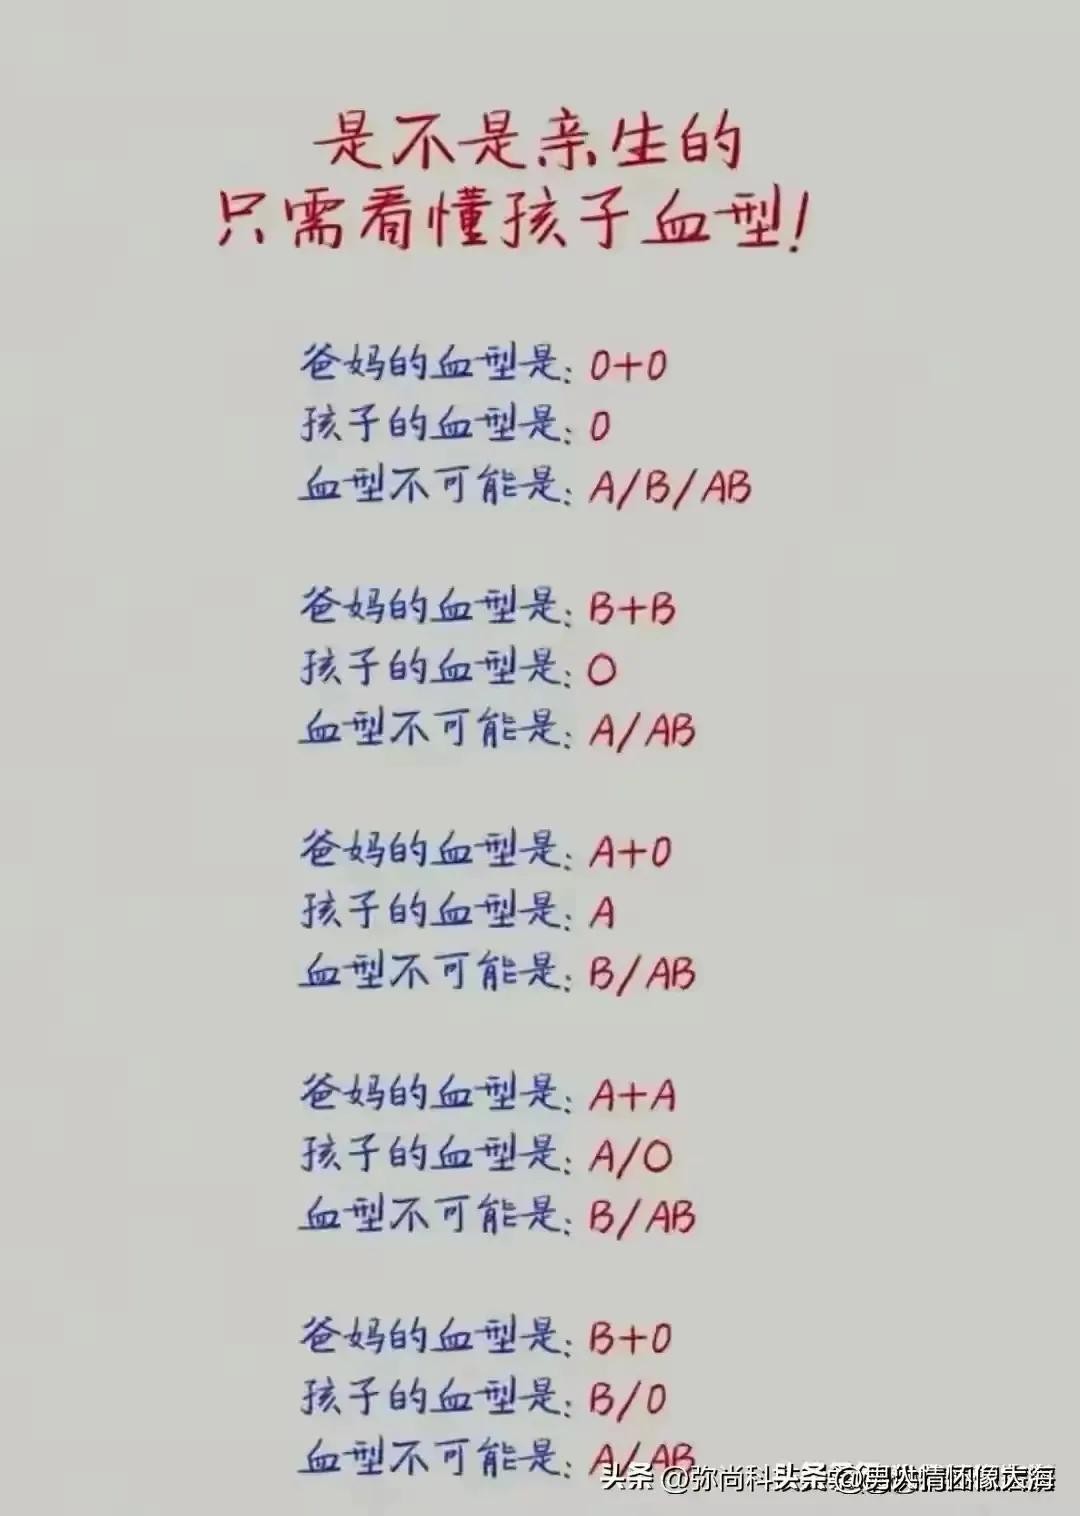 是不是亲生的
只需看懂孩子血型!
爸妈的血型是: O+O
孩子的血型是: O
血型不可能是: A/B/AB
爸妈的血型是: B+B
孩子的血型是: O
血型不可能是: A/AB
爸妈的血型是: A+O
孩子的血型是: A
血型不可能是: B/AB
爸妈的血型是: A+A
孩子的血型是: A/O
血型不可能是: B/AB
爸妈的血型是: B+O
孩子的血型是: B/O
血型不可能是: A/AB
头条 @弥尚科
头条 @男人情怀像大海